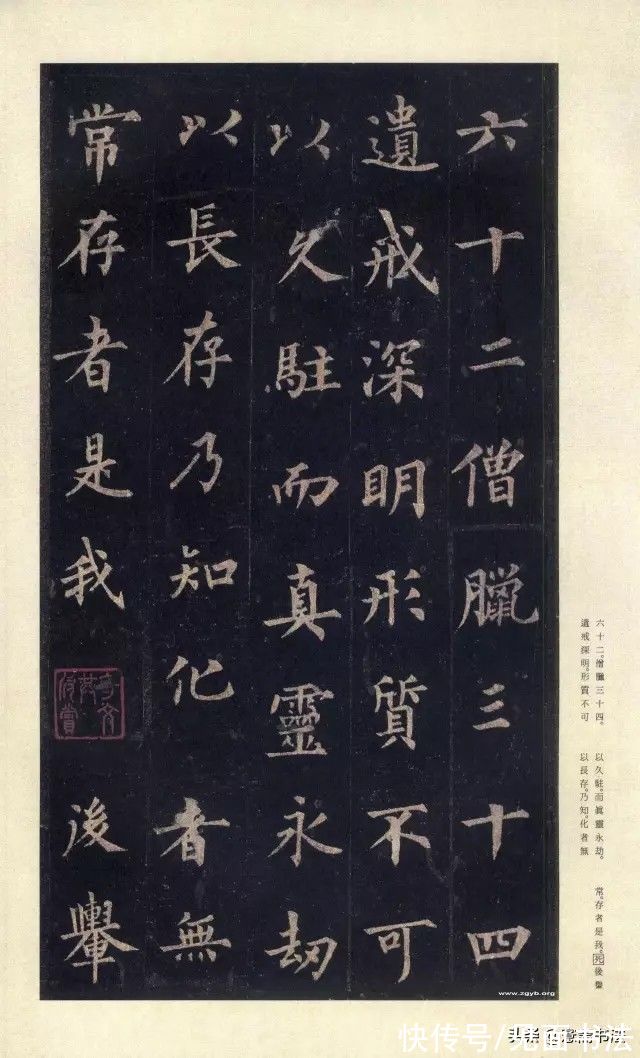 六十二僧臘三十四
遺戒深明形質不可
以久駐而真靈永劫
以長存乃知化者無
常存者是我
後轝
六十二。僧臘三十四。
遺戒深明。形質不可
以久駐。而眞靈永劫。
以長存。乃知。化者無
常。存者是我。死後轝
www.zgyb.org
快传号/
书法